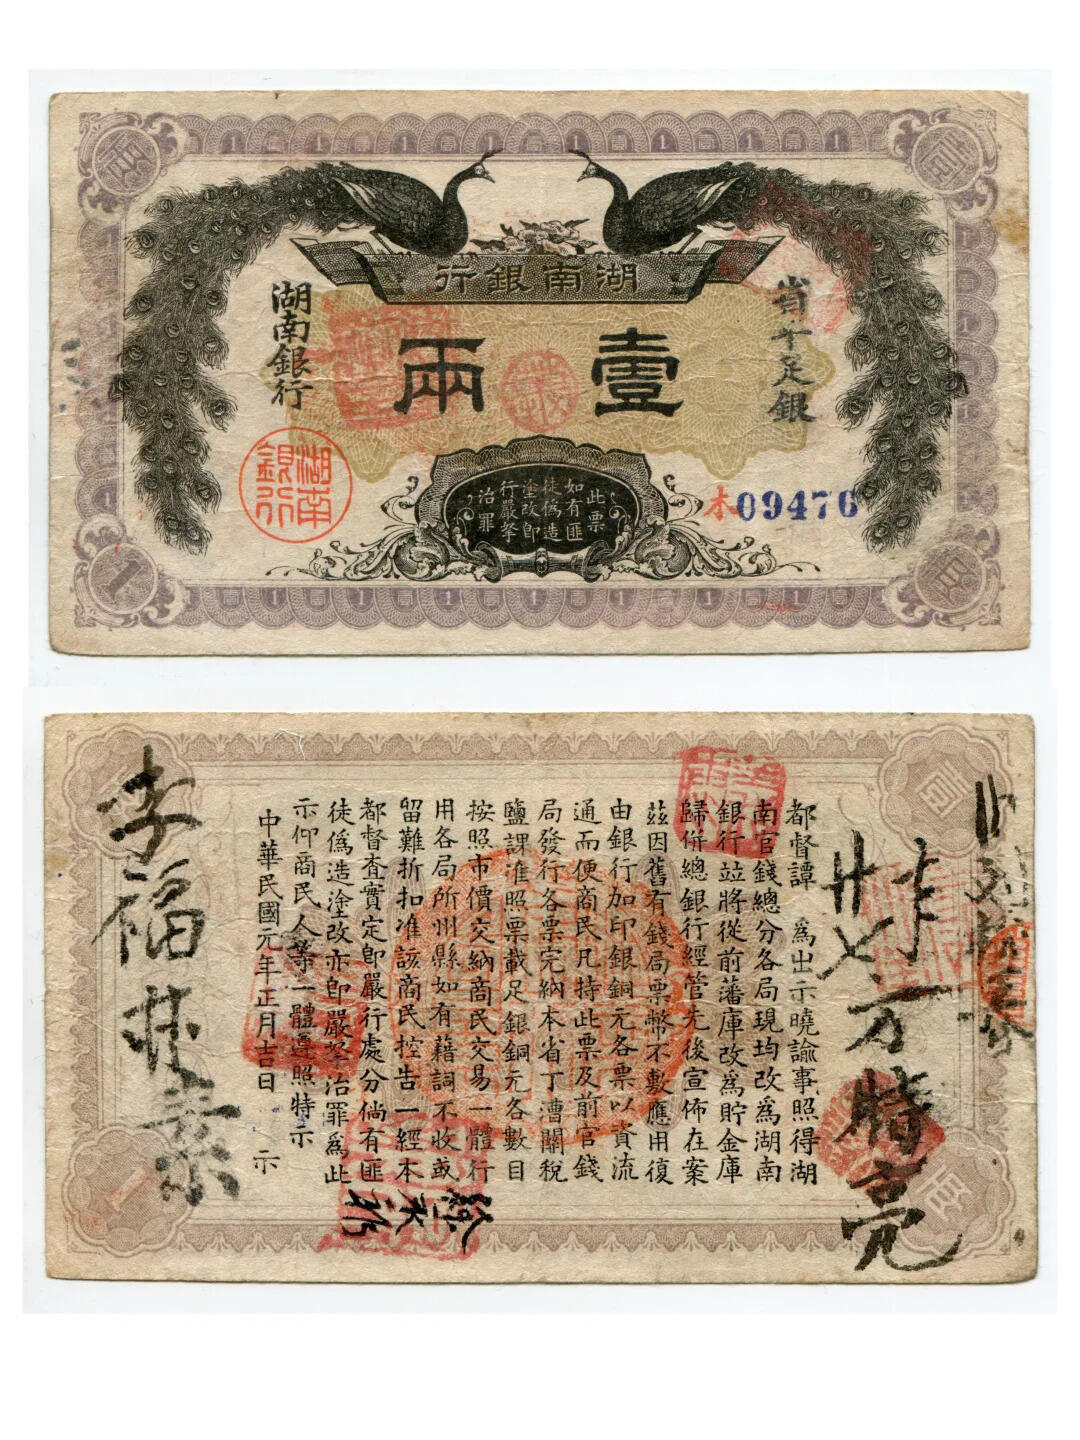 湖南銀行
壹兩
省平足銀
湖南銀行
湖南銀行
此票
如有匪
徒偽造
塗改即
行嚴拏
治罪
木09476
1
都督譚 為出示曉諭事照得湖
南官錢總分各局現均改為湖南
銀行竝將從前藩庫改為貯金庫
歸併總銀行經管先後宣佈在案
茲因舊有錢局票幣不敷應用復
由銀行加印銀銅元各票以資流
通而便商民凡持此票及前官錢
局發行各票完納本省丁漕關稅
鹽課准照票載足銀銅元各數目
按照市價交納商民交易一體行
用各局所州縣如有藉詞不收或
留難折扣准該商民控告一經本
都督査實定卽嚴行處分倘有匪
徒偽造塗改亦卽嚴拏治罪為此
示仰商民人等一體遵照特示
中華民國元年正月吉日 示
李福林